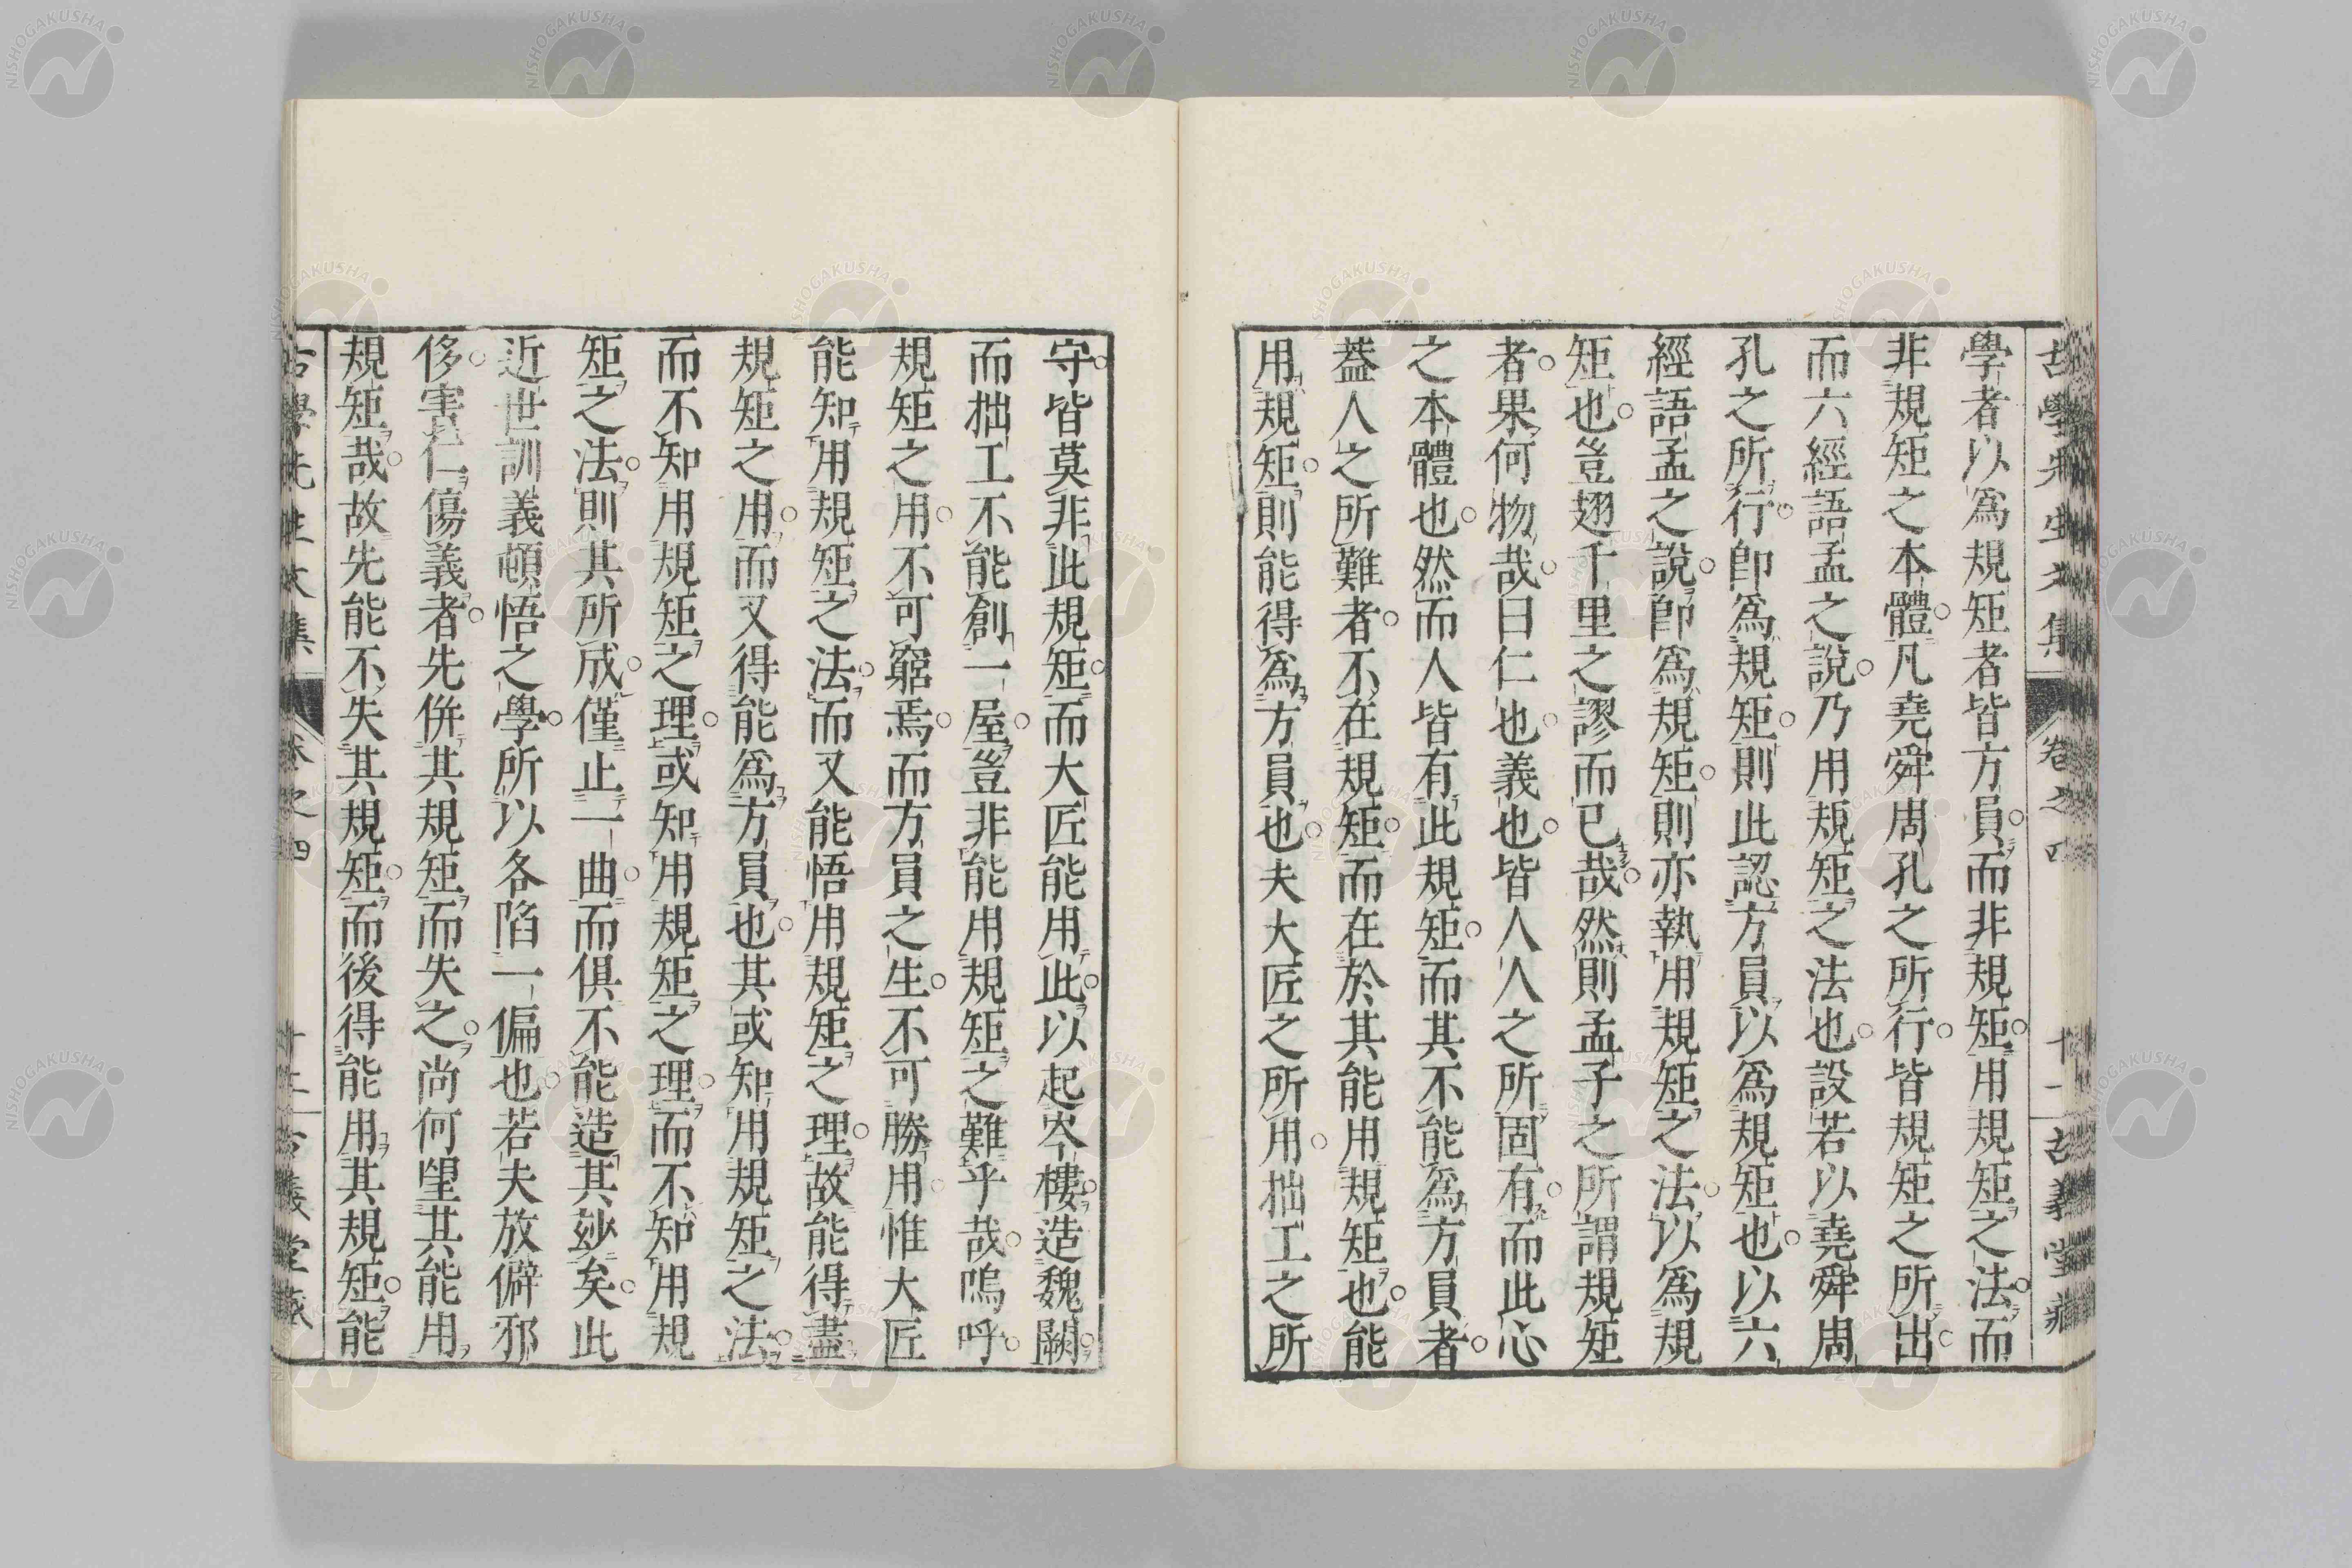 古學先生文集 卷之四 十二 古義堂藏
學者以爲規矩者皆方員而非規矩用規矩之法而
非規矩之本體凡堯舜周孔之所行皆規矩之所出
而六經語孟之說乃用規矩之法也設若以堯舜周
孔之所行卽爲規矩則此認方員以爲規矩也以六
經語孟之說卽爲規矩則亦執用規矩之法以爲規
矩也豈翅千里之謬而已哉然則孟子之所謂規矩
者果何物哉曰仁也義也皆人人之所固有而此心
之本體也然而人皆有此規矩而其不能爲方員者
蓋人之所難者不在規矩而在於其能用規矩也能
用規矩則能得爲方員也夫大匠之所用拙工之所
守皆莫非此規矩而大匠能用此以起岑樓造魏闕
而拙工不能創一屋豈非能用規矩之難乎哉嗚呼
規矩之用不可窮焉而方員之生不可勝用惟大匠
能知用規矩之法而又能悟用規矩之理故能得盡
規矩之用而又得能爲方員也其或知用規矩之法
而不知用規矩之理或知用規矩之理而不知用規
矩之法則其所成僅止一曲而俱不能造其妙矣此
近世訓義頓悟之學所以各陷一偏也若夫放僻邪
侈害仁傷義者先倂其規矩而失之尚何望其能用
規矩哉故先能不失其規矩而後得能用其規矩能
古學先生文集 卷之四 十二 古義堂藏